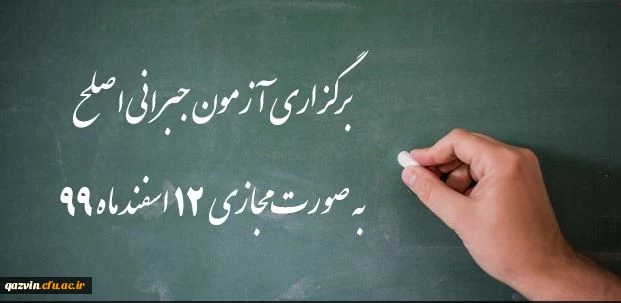 برگزاری آزمون جبرانی اصلح
به صورت مجازی ۱۲ اسفند ماه ۹۹
qazvin.cfu.ac.ir